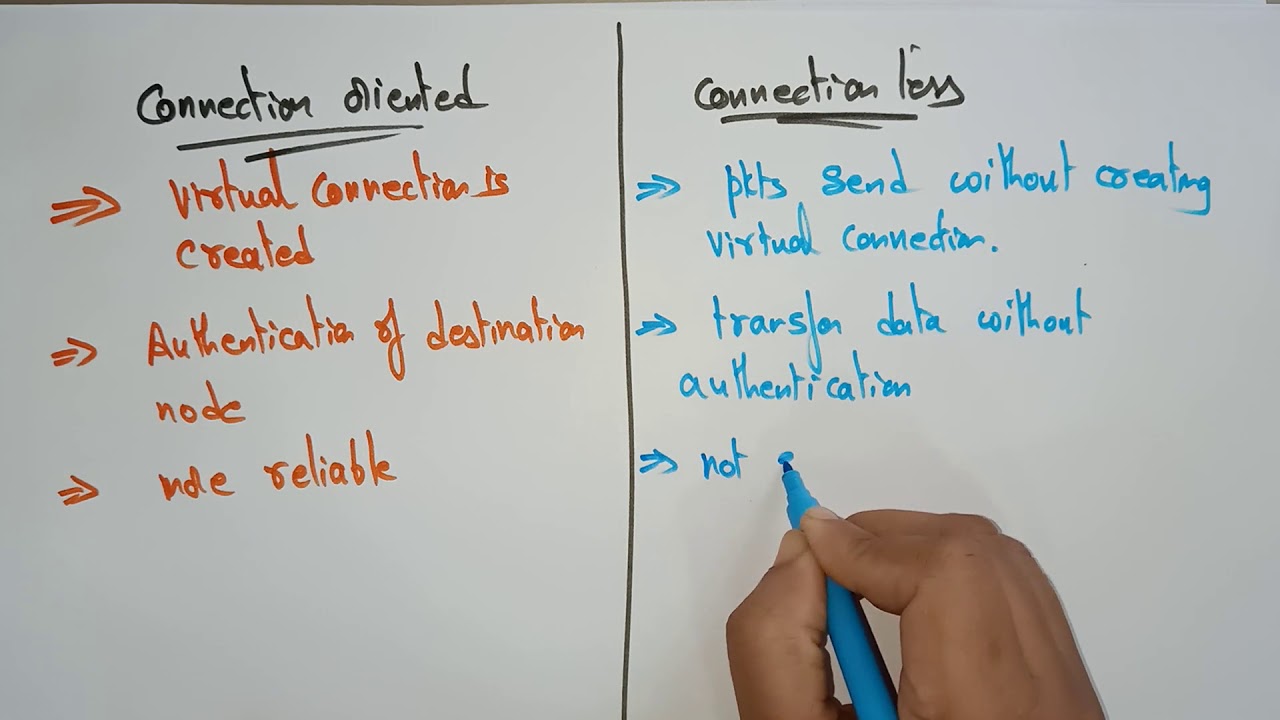 Connection oriented
virtual connection is
created
Authentication of destination
node
more reliable
connection less
pkts send without creating
virtual connection.
transfer data without
authentication
not